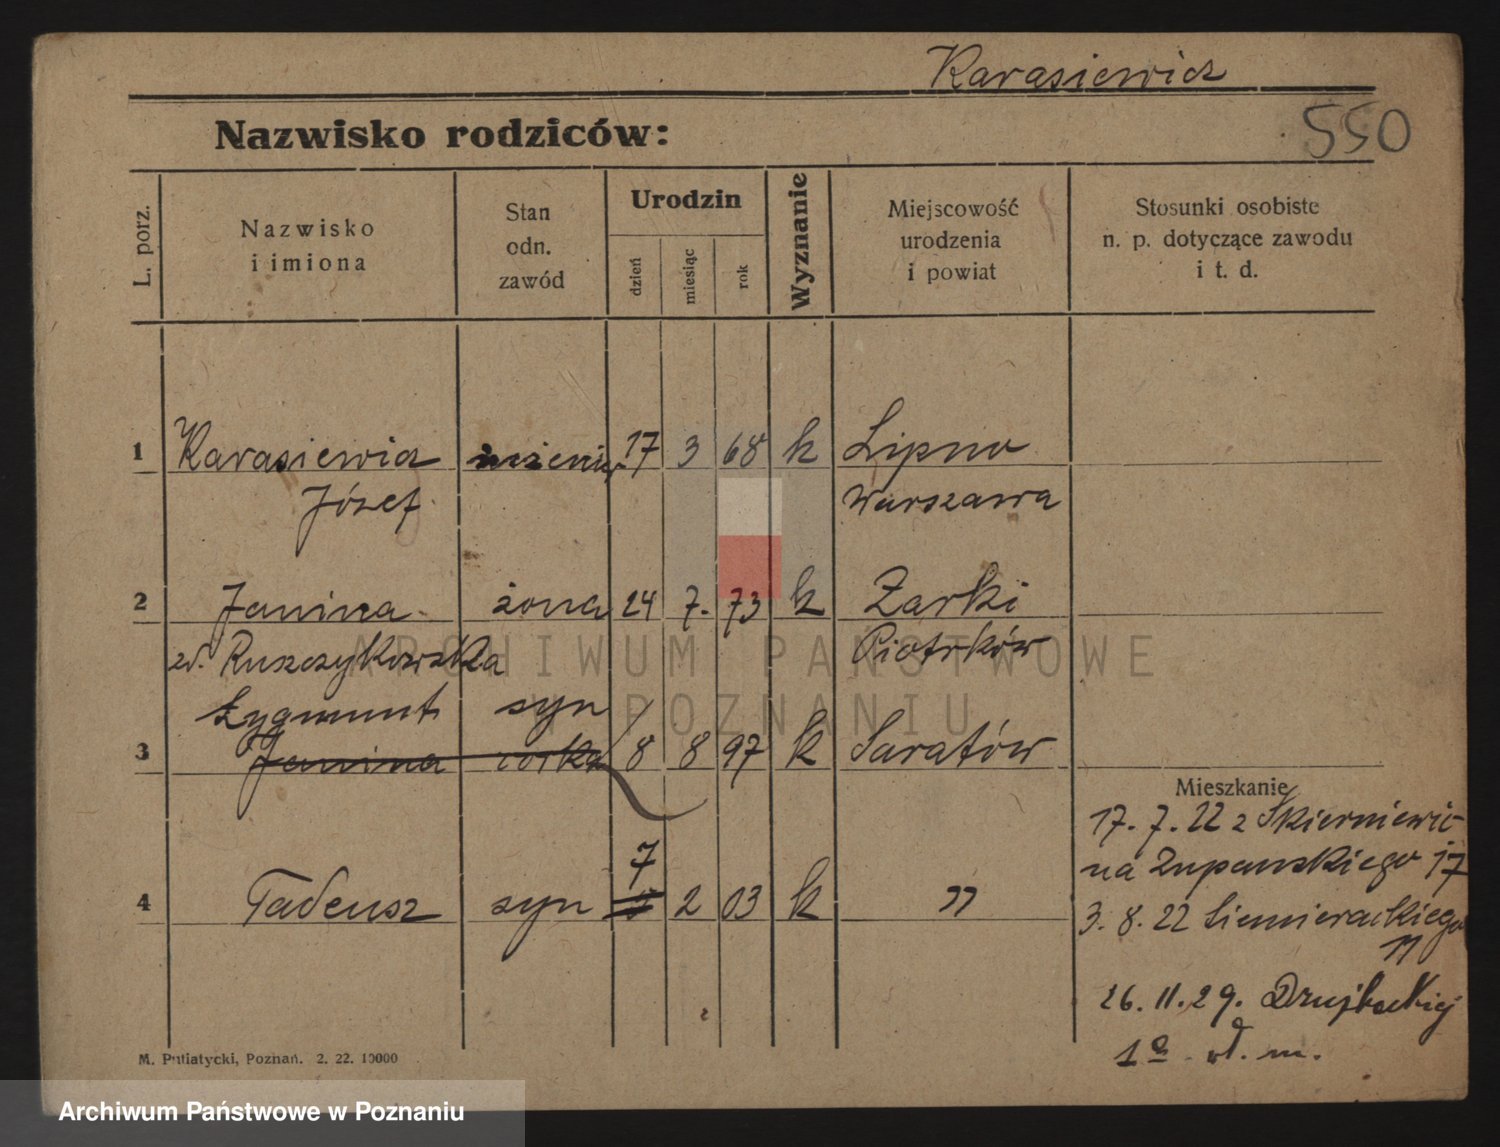 Karasiewicz
550
Nazwisko rodziców:
L. porz.
Nazwisko
i imiona
Stan
odn.
zawód
Urodzin
dzień
miesiąc
rok
Wyznanie
Miejscowość
urodzenia
i powiat
Stosunki osobiste
n. p. dotyczące zawodu
i t. d.
1 Karasiewicz inżenier 17 3 68 k Lipno
Józef Warszawa
2 Janina żona 24 7. 73 k Żarki
zd. Ruszczykowska Piotrków
Zygmunt syn
3 Janina córka 8 8 97 k Saratów
Mieszkanie
17. 7. 22 z Skierniewic
na Żupańskiego 17
7
4 Tadeusz syn 2 03 k "
3. 8. 22 Siemieradzkiego
11
26. 11. 29. Drużbackiej
1a
M. Putiatycki, Poznań. 2. 22. 10000
ARCHIWUM PAŃSTWOWE
W POZNANIU
Archiwum Państwowe w Poznaniu